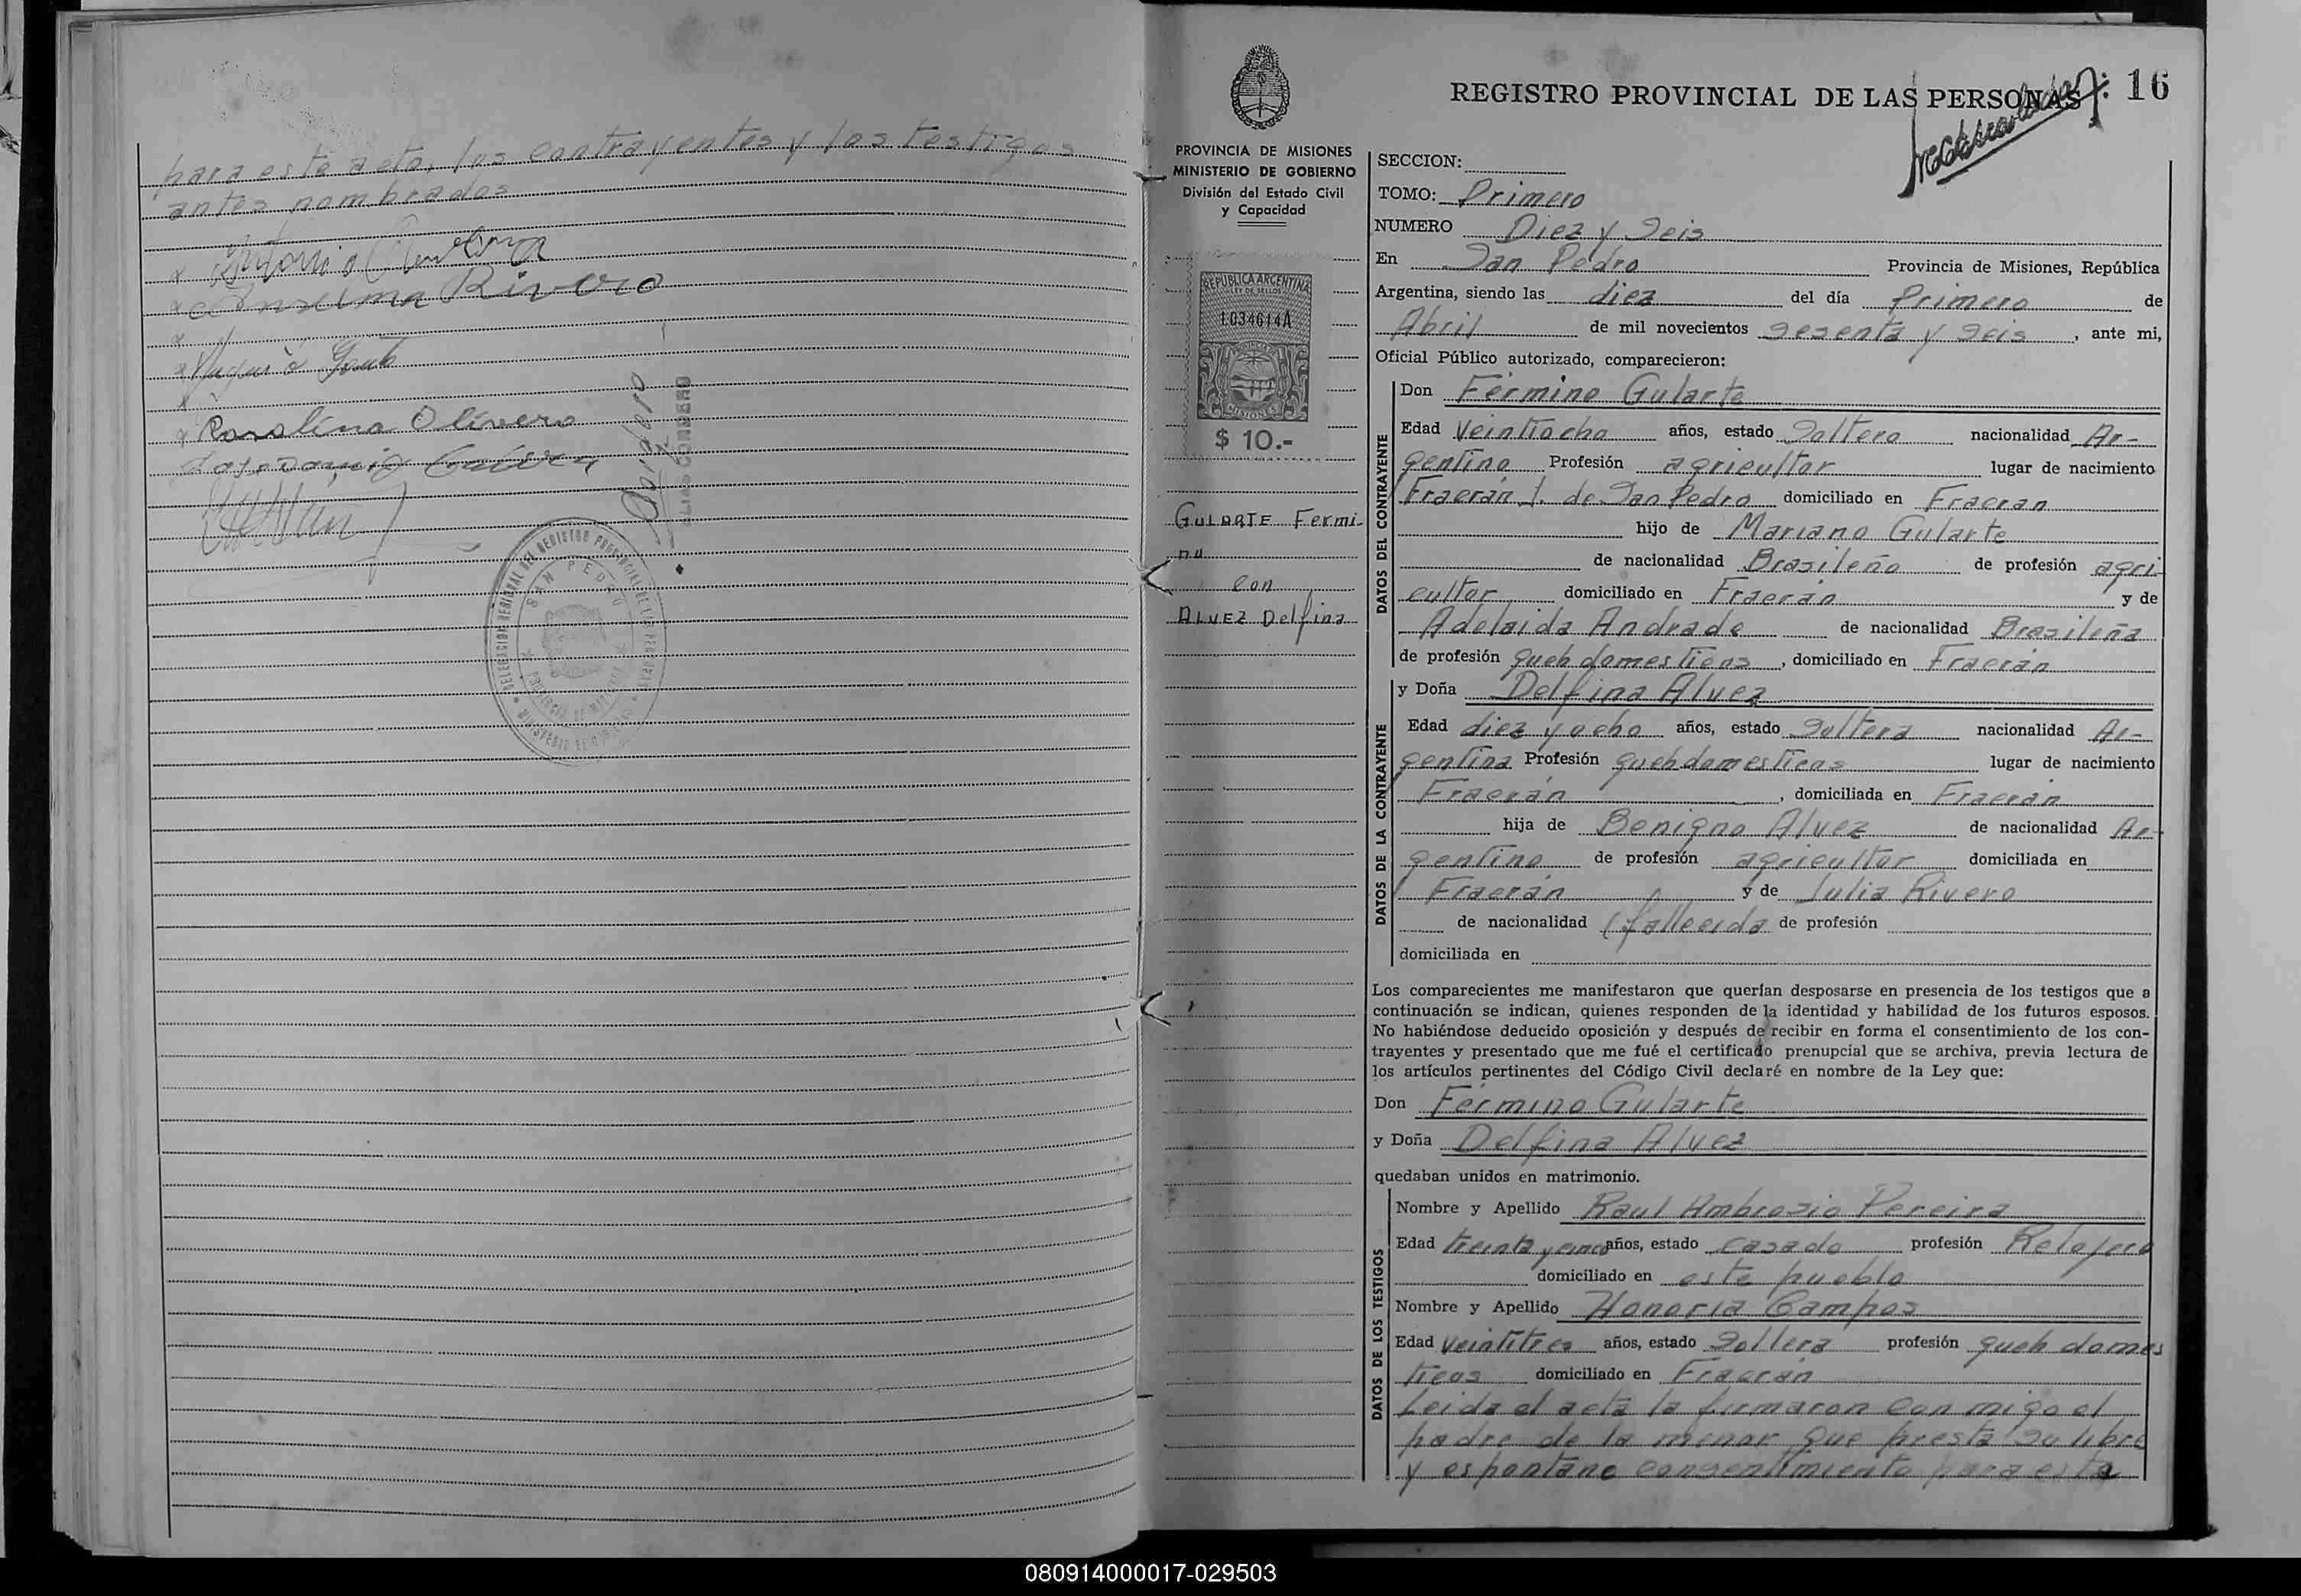 para este acto, los contrayentes y los testigos
antes nombrados
Anselma Rivero
Rosalina Olivera
DELEGACION REGIONAL DEL REGISTRO PROVINCIAL DE LAS PERSONAS
SAN PEDRO
PROVINCIA DE MISIONES
MINISTERIO DE GOBIERNO
PROVINCIA DE MISIONES
MINISTERIO DE GOBIERNO
División del Estado Civil
y Capacidad
REPUBLICA ARGENTINA
LEY DE SELLOS
1.034614A
MISIONES
$ 10.-
GULARTE Fermi-
no
con
ALVEZ Delfina
REGISTRO PROVINCIAL DE LAS PERSONAS 16
SECCION:
TOMO: Primero
NUMERO Diez y Seis
En San Pedro Provincia de Misiones, República
Argentina, siendo las diez del día Primero de
Abril de mil novecientos sesenta y seis, ante mi,
Oficial Público autorizado, comparecieron:
DATOS DEL CONTRAYENTE
Don Fermino Gularte
Edad Veintiocho años, estado Soltero nacionalidad Ar-
gentino Profesión agricultor lugar de nacimiento
Fracrán J. de San Pedro domiciliado en Fracran
hijo de Mariano Gularte
de nacionalidad Brasileño de profesión agri
cultor domiciliado en Fracrán y de
Adelaida Andrade de nacionalidad Brasileña
de profesión queh domesticos, domiciliado en Fracrán
DATOS DE LA CONTRAYENTE
y Doña Delfina Alvez
Edad diez y ocho años, estado Soltera nacionalidad Ar-
gentina Profesión queh domesticos lugar de nacimiento
Fracrán, domiciliada en Fracrán
hija de Benigno Alvez de nacionalidad Ar-
gentino de profesión agricultor domiciliada en
Fracrán y de Julia Rivero
de nacionalidad (fallecida de profesión
domiciliada en
Los comparecientes me manifestaron que querían desposarse en presencia de los testigos que a
continuación se indican, quienes responden de la identidad y habilidad de los futuros esposos.
No habiéndose deducido oposición y después de recibir en forma el consentimiento de los con-
trayentes y presentado que me fué el certificado prenupcial que se archiva, previa lectura de
los artículos pertinentes del Código Civil declaré en nombre de la Ley que:
Don Fermino Gularte
y Doña Delfina Alvez
quedaban unidos en matrimonio.
DATOS DE LOS TESTIGOS
Nombre y Apellido Raul Ambrosio Pereira
Edad treinta y cinco años, estado casado profesión Relojero
domiciliado en este pueblo
Nombre y Apellido Honoria Campos
Edad Veintitres años, estado Soltera profesión queh domes
ticos domiciliado en Fracrán
Leida el acta la firmaron con migo el
padre de la menor que presta su libre
y espontane consentimiento para este
080914000017-029503